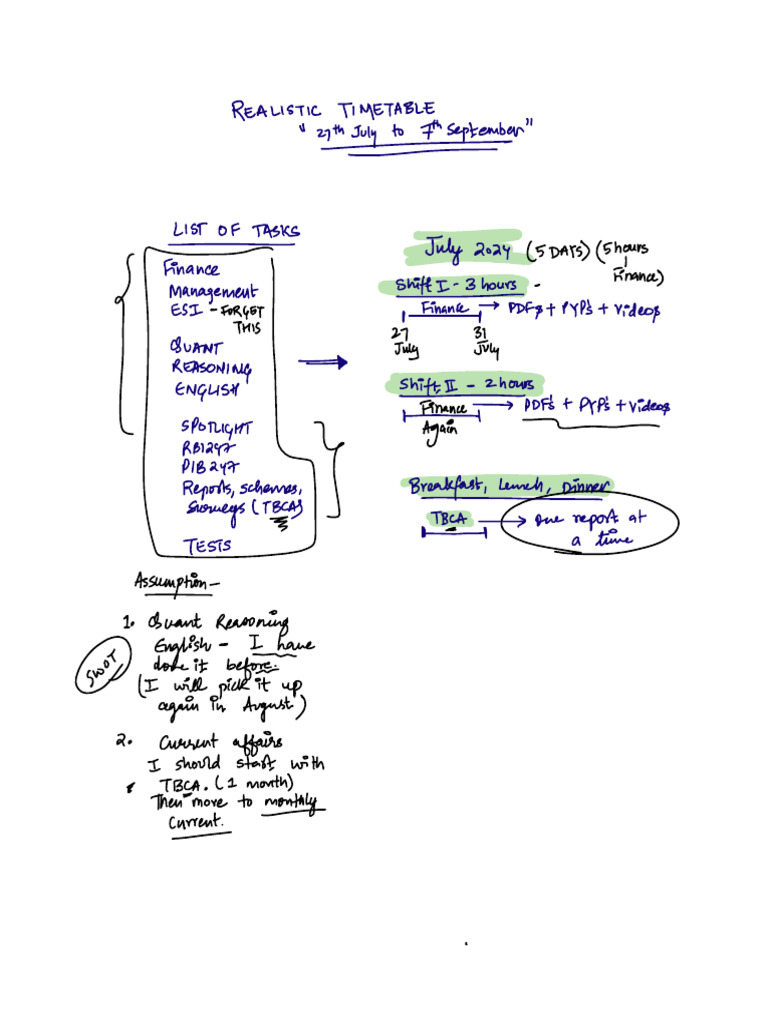 REALISTIC TIMETABLE
"27th July to 7th September"
LIST OF TASKS
Finance
Management
ESI - FORGET
THIS
QUANT
REASONING
ENGLISH
SPOTLIGHT
RBI247
PIB247
Reports, schemes,
surveys (TBCA)
TESTS
Assumption -
1. Quant Reasoning
English - I have
done it before.
(I will pick it up
again in August)
SWOT
2. Current affairs
I should start with
TBCA. (1 month)
Then move to monthly
current.
July 2024 (5 DAYS) (5 hours
Finance)
Shift I - 3 hours -
Finance → PDFs + PYP's + videos
27 31
July July
Shift II - 2 hours
Finance → PDF's + PYP's + videos
Again
Breakfast, Lunch, Dinner
TBCA → one report at
a time